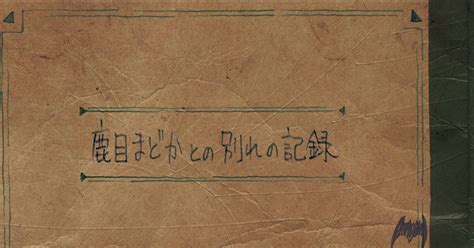 鹿目まどかとの別れの記録